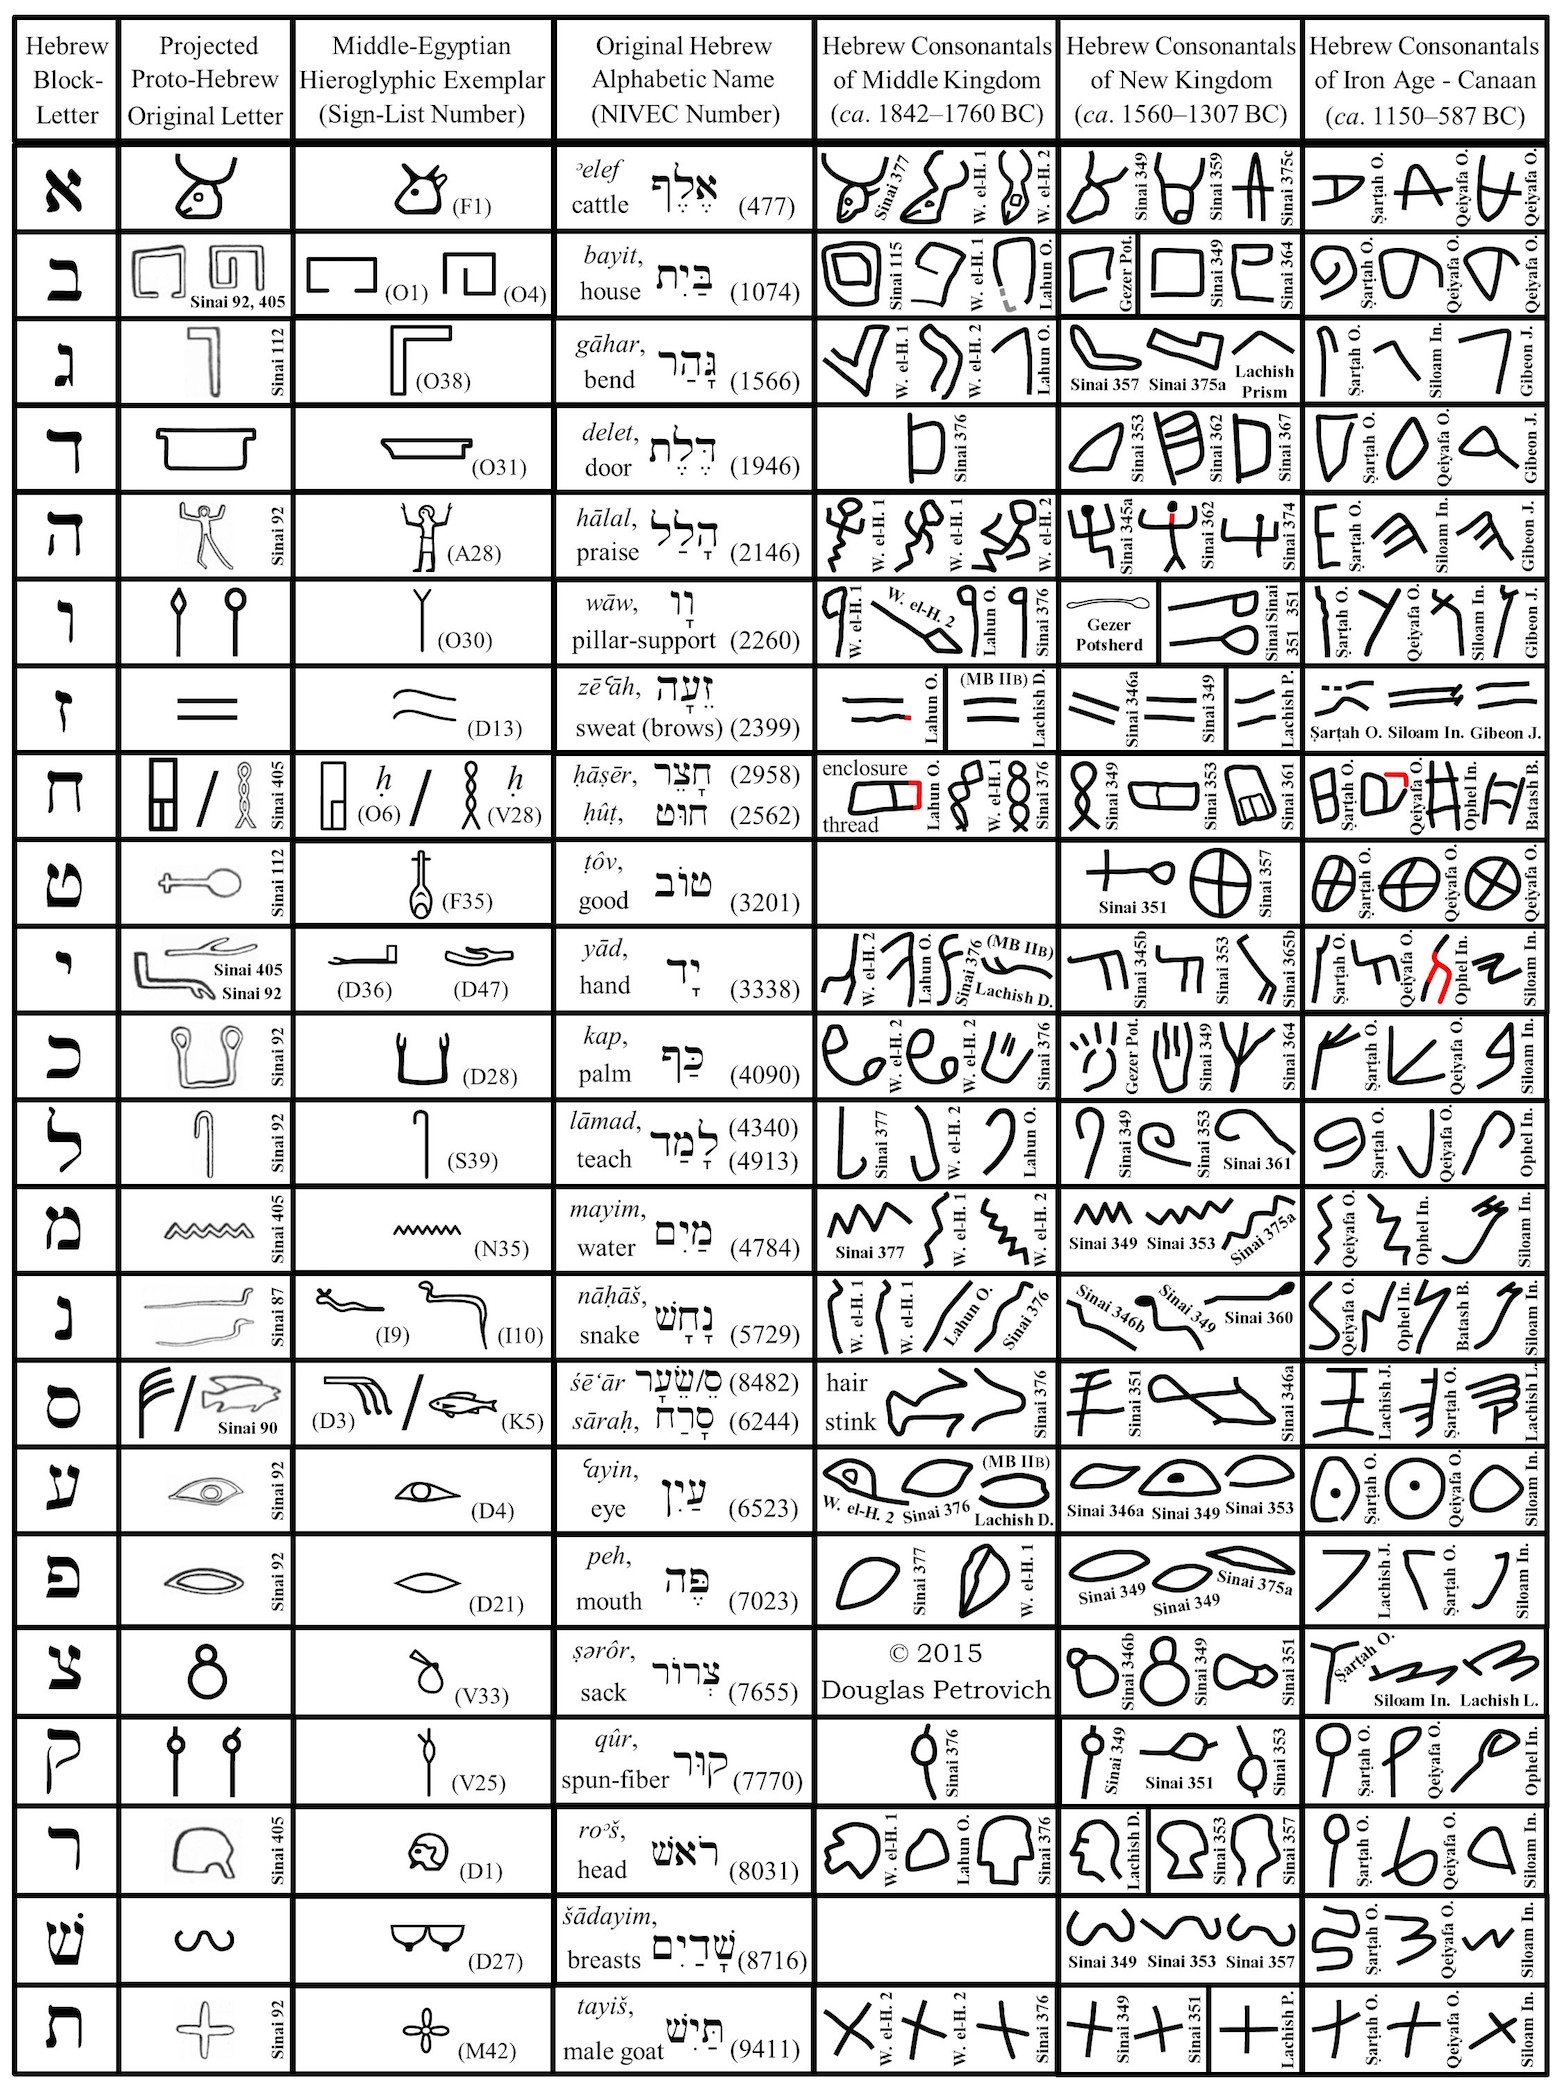 Hebrew Block-Letter
Projected Proto-Hebrew Original Letter
Middle-Egyptian Hieroglyphic Exemplar (Sign-List Number)
Original Hebrew Alphabetic Name (NIVEC Number)
Hebrew Consonantals of Middle Kingdom (ca. 1842–1760 BC)
Hebrew Consonantals of New Kingdom (ca. 1560–1307 BC)
Hebrew Consonantals of Iron Age - Canaan (ca. 1150–587 BC)
א
(F1)
ʾelef אֶלֶף
cattle (477)
Sinai 377 W. el-H. 1 W. el-H. 2
Sinai 349 Sinai 359 Sinai 375c
Ṣarṭah O. Qeiyafa O. Qeiyafa O.
ב
Sinai 92, 405
(O1) (O4)
bayit, בַּיִת
house (1074)
Sinai 115 W. el-H. 1 Lahun O.
Gezer Pot. Sinai 349 Sinai 364
Ṣarṭah O. Qeiyafa O. Qeiyafa O.
ג
Sinai 112
(O38)
gāhar, גָּהַר
bend (1566)
W. el-H. 1 W. el-H. 2 Lahun O.
Sinai 357 Sinai 375a Lachish Prism
Ṣarṭah O. Siloam In. Gibeon J.
ד
(O31)
delet, דֶּלֶת
door (1946)
Sinai 376
Sinai 353 Sinai 362 Sinai 367
Ṣarṭah O. Qeiyafa O. Gibeon J.
ה
Sinai 92
(A28)
hālal, הָלַל
praise (2146)
W. el-H. 1 W. el-H. 1 W. el-H. 2
Sinai 345a Sinai 362 Sinai 374
Ṣarṭah O. Siloam In. Gibeon J.
ו
(O30)
wāw, וָו
pillar-support (2260)
W. el-H. 1 W. el-H. 2 Lahun O. Sinai 376
Gezer Potsherd Sinai 351 Sinai 351
Ṣarṭah O. Qeiyafa O. Siloam In. Gibeon J.
ז
(D13)
zēʿāh, זֵעָה
sweat (brows) (2399)
Lahun O. (MB IIB) Lachish D.
Sinai 346a Sinai 349 Lachish P.
Ṣarṭah O. Siloam In. Gibeon J.
ח
/ Sinai 405
ḥ (O6) / ḥ (V28)
ḥāṣēr, חָצֵר (2958)
ḥûṭ, חוּט (2562)
enclosure thread Lahun O. W. el-H. 1 Sinai 376
Sinai 349 Sinai 353 Sinai 361
Ṣarṭah O. Qeiyafa O. Ophel In. Batash B.
ט
Sinai 112
(F35)
ṭôv, טוֹב
good (3201)
Sinai 351 Sinai 357
Ṣarṭah O. Qeiyafa O. Qeiyafa O.
י
Sinai 405 Sinai 92
(D36) (D47)
yād, יָד
hand (3338)
W. el-H. 2 Lahun O. Sinai 376 (MB IIB) Lachish D.
Sinai 345b Sinai 353 Sinai 365b
Ṣarṭah O. Qeiyafa O. Ophel In. Siloam In.
כ
Sinai 92
(D28)
kap, כַּף
palm (4090)
W. el-H. 2 W. el-H. 2 Sinai 376
Gezer Pot. Sinai 349 Sinai 364
Ṣarṭah O. Qeiyafa O. Siloam In.
ל
Sinai 92
(S39)
lāmad, לָמַד (4340)
teach (4913)
Sinai 377 W. el-H. 2 Lahun O.
Sinai 349 Sinai 353 Sinai 361
Ṣarṭah O. Qeiyafa O. Ophel In.
מ
Sinai 405
(N35)
mayim, מַיִם
water (4784)
Sinai 377 W. el-H. 1 W. el-H. 2
Sinai 349 Sinai 353 Sinai 375a
Qeiyafa O. Ophel In. Siloam In.
נ
Sinai 87
(I9) (I10)
nāḥāš, נָחָשׁ
snake (5729)
W. el-H. 1 W. el-H. 1 Lahun O. Sinai 376
Sinai 346b Sinai 349 Sinai 360
Qeiyafa O. Ophel In. Batash B. Siloam In.
ס
/ Sinai 90
(D3) / (K5)
śēʿār סֵ/שֵׂעָר (8482)
sāraḥ, סָרַח (6244)
hair stink Sinai 376
Sinai 351 Sinai 346a
Lachish J. Ṣarṭah O. Lachish L.
ע
Sinai 92
(D4)
ʿayin, עַיִן
eye (6523)
W. el-H. 2 Sinai 376 (MB IIB) Lachish D.
Sinai 346a Sinai 349 Sinai 353
Ṣarṭah O. Qeiyafa O. Siloam In.
פ
Sinai 92
(D21)
peh, פֶּה
mouth (7023)
Sinai 377 W. el-H. 1
Sinai 349 Sinai 349 Sinai 375a
Lachish J. Ṣarṭah O. Siloam In.
צ
(V33)
ṣərôr, צְרוֹר
sack (7655)
© 2015
Douglas Petrovich
Sinai 346b Sinai 349 Sinai 351
Ṣarṭah O. Siloam In. Lachish L.
ק
(V25)
qûr, קוּר
spun-fiber (7770)
Sinai 376
Sinai 349 Sinai 351 Sinai 353
Ṣarṭah O. Qeiyafa O. Ophel In.
ר
Sinai 405
(D1)
roʾš, רֹאשׁ
head (8031)
W. el-H. 1 Lahun O. Sinai 376
Lachish D. Sinai 353 Sinai 357
Ṣarṭah O. Qeiyafa O. Siloam In.
שׁ
(D27)
šādayim, שָׁדַיִם
breasts (8716)
Sinai 349 Sinai 353 Sinai 357
Ṣarṭah O. Qeiyafa O. Siloam In.
ת
Sinai 92
(M42)
tayiš, תַּיִשׁ
male goat (9411)
W. el-H. 2 W. el-H. 2 Sinai 376
Sinai 349 Sinai 351 Lachish P.
Ṣarṭah O. Qeiyafa O. Siloam In.